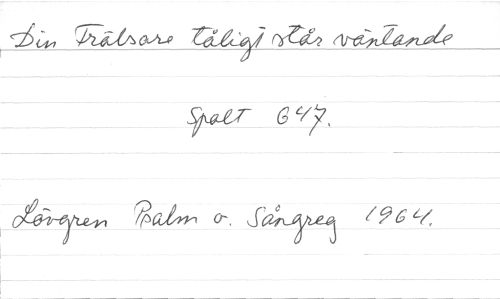 Din Frälsare tåligt står väntande
Spalt 647.
Lövgren Psalm o. Sångreg 1964.